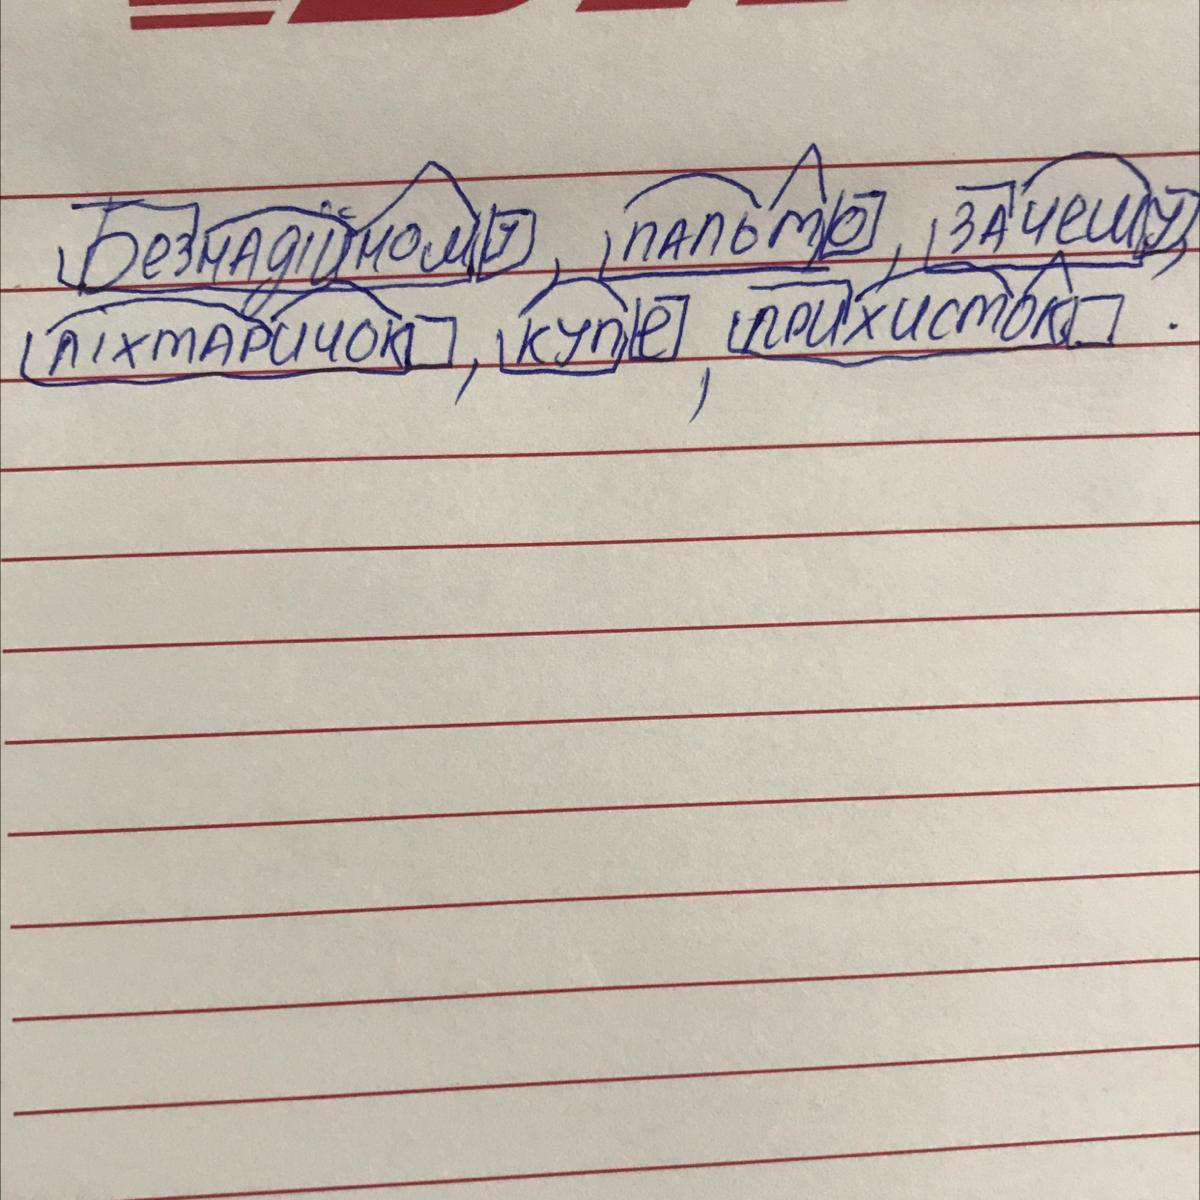 Безнадійному, пальто, зачешу,
ліхтаричок, купе, прихисток.